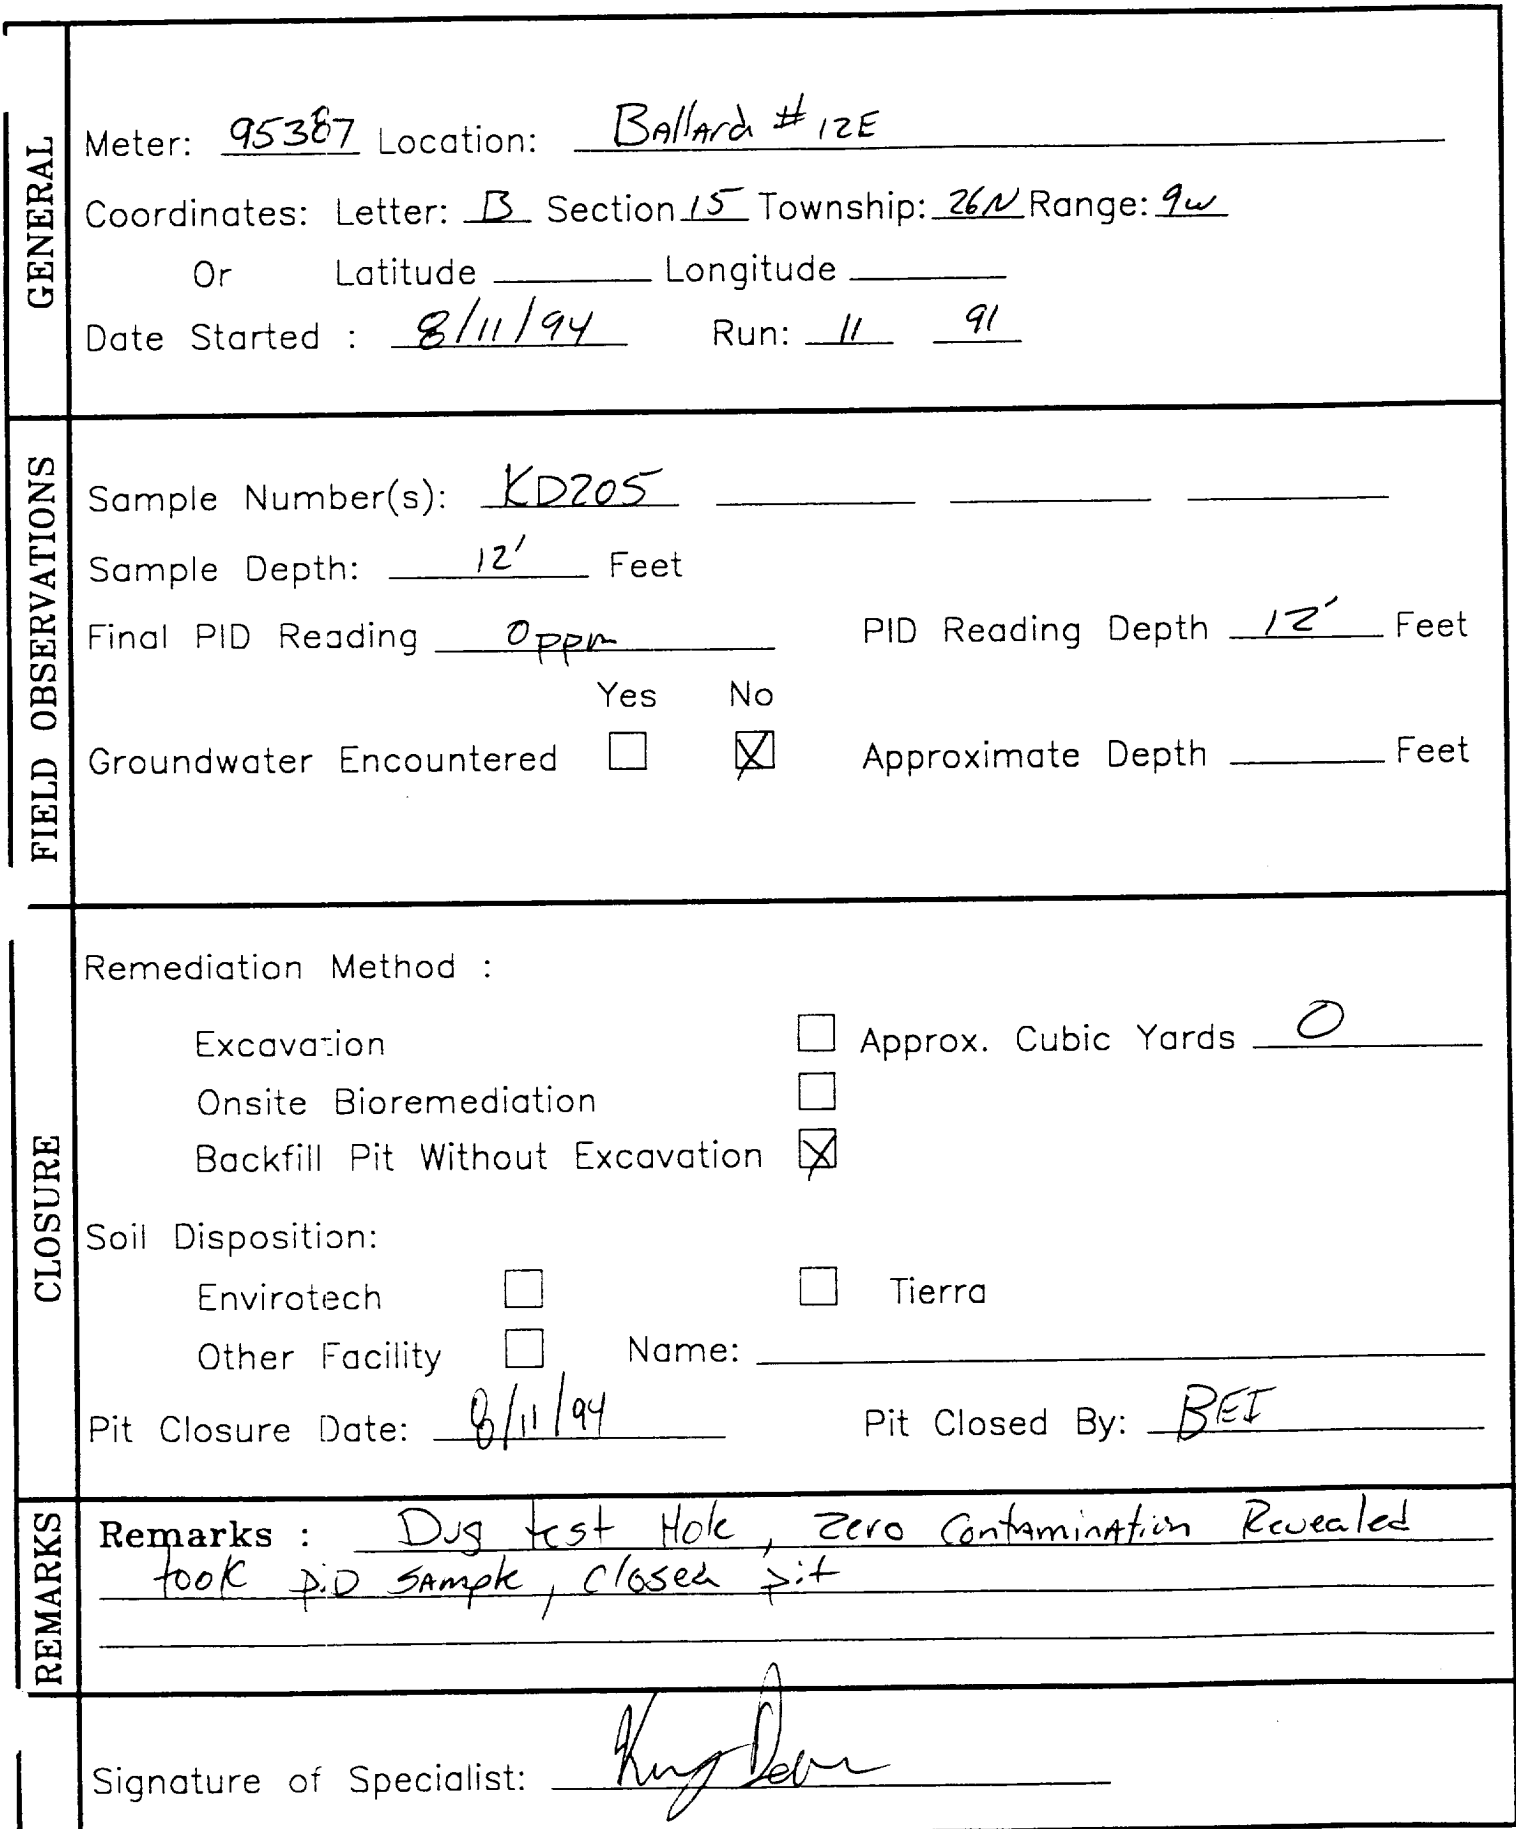 GENERAL
Meter: 95387 Location: Ballard #12E
Coordinates: Letter: B Section 15 Township: 26N Range: 9w
Or Latitude Longitude
Date Started : 8/11/94 Run: 11 91
FIELD OBSERVATIONS
Sample Number(s): KD205
Sample Depth: 12' Feet
Final PID Reading 0ppm PID Reading Depth 12' Feet
Yes No
Groundwater Encountered Approximate Depth Feet
CLOSURE
Remediation Method :
Excavation Approx. Cubic Yards 0
Onsite Bioremediation
Backfill Pit Without Excavation
Soil Disposition:
Envirotech Tierra
Other Facility Name:
Pit Closure Date: 8/11/94 Pit Closed By: BEI
REMARKS
Remarks : Dug test Hole, Zero Contamination Revealed
took PiD Sample, Closed pit
Signature of Specialist: